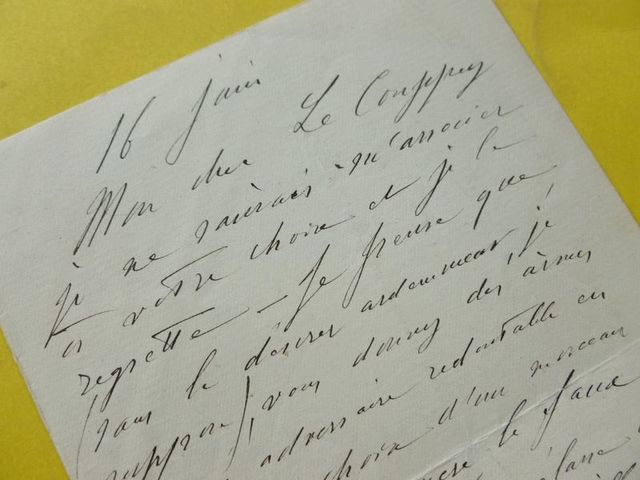 16 juin
Mon cher Le Couppey
je ne saurais m'associer
à votre choix et je le
regrette - Je pense que
(sans le désirer ardemment je
suppose), vous donnez des armes
adversaire redoutable en
choix d'un morceau
le